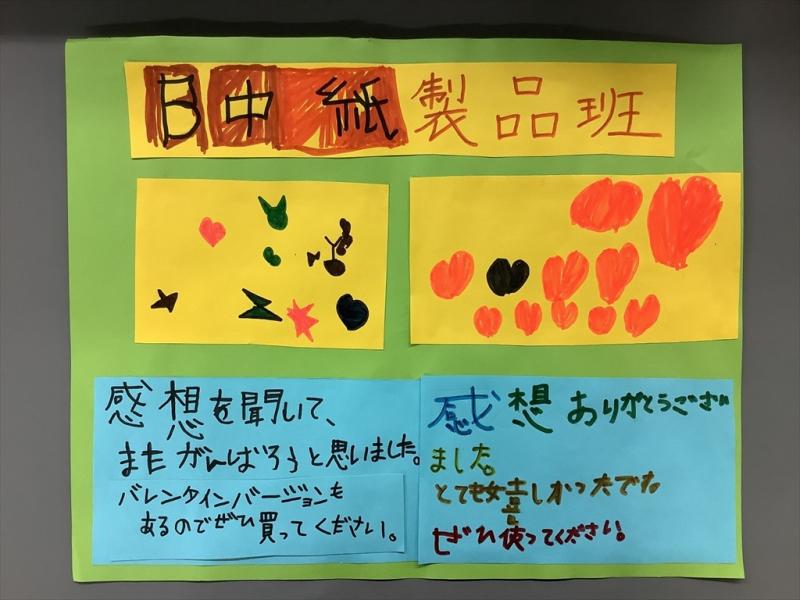 日中 紙製品班
感想を聞いて、
またがんばろうと思いました。
バレンタインバージョンも
あるのでぜひ買ってください。
感想ありがとうござい
ました。
とても嬉しかったです。
ぜひ使ってください。